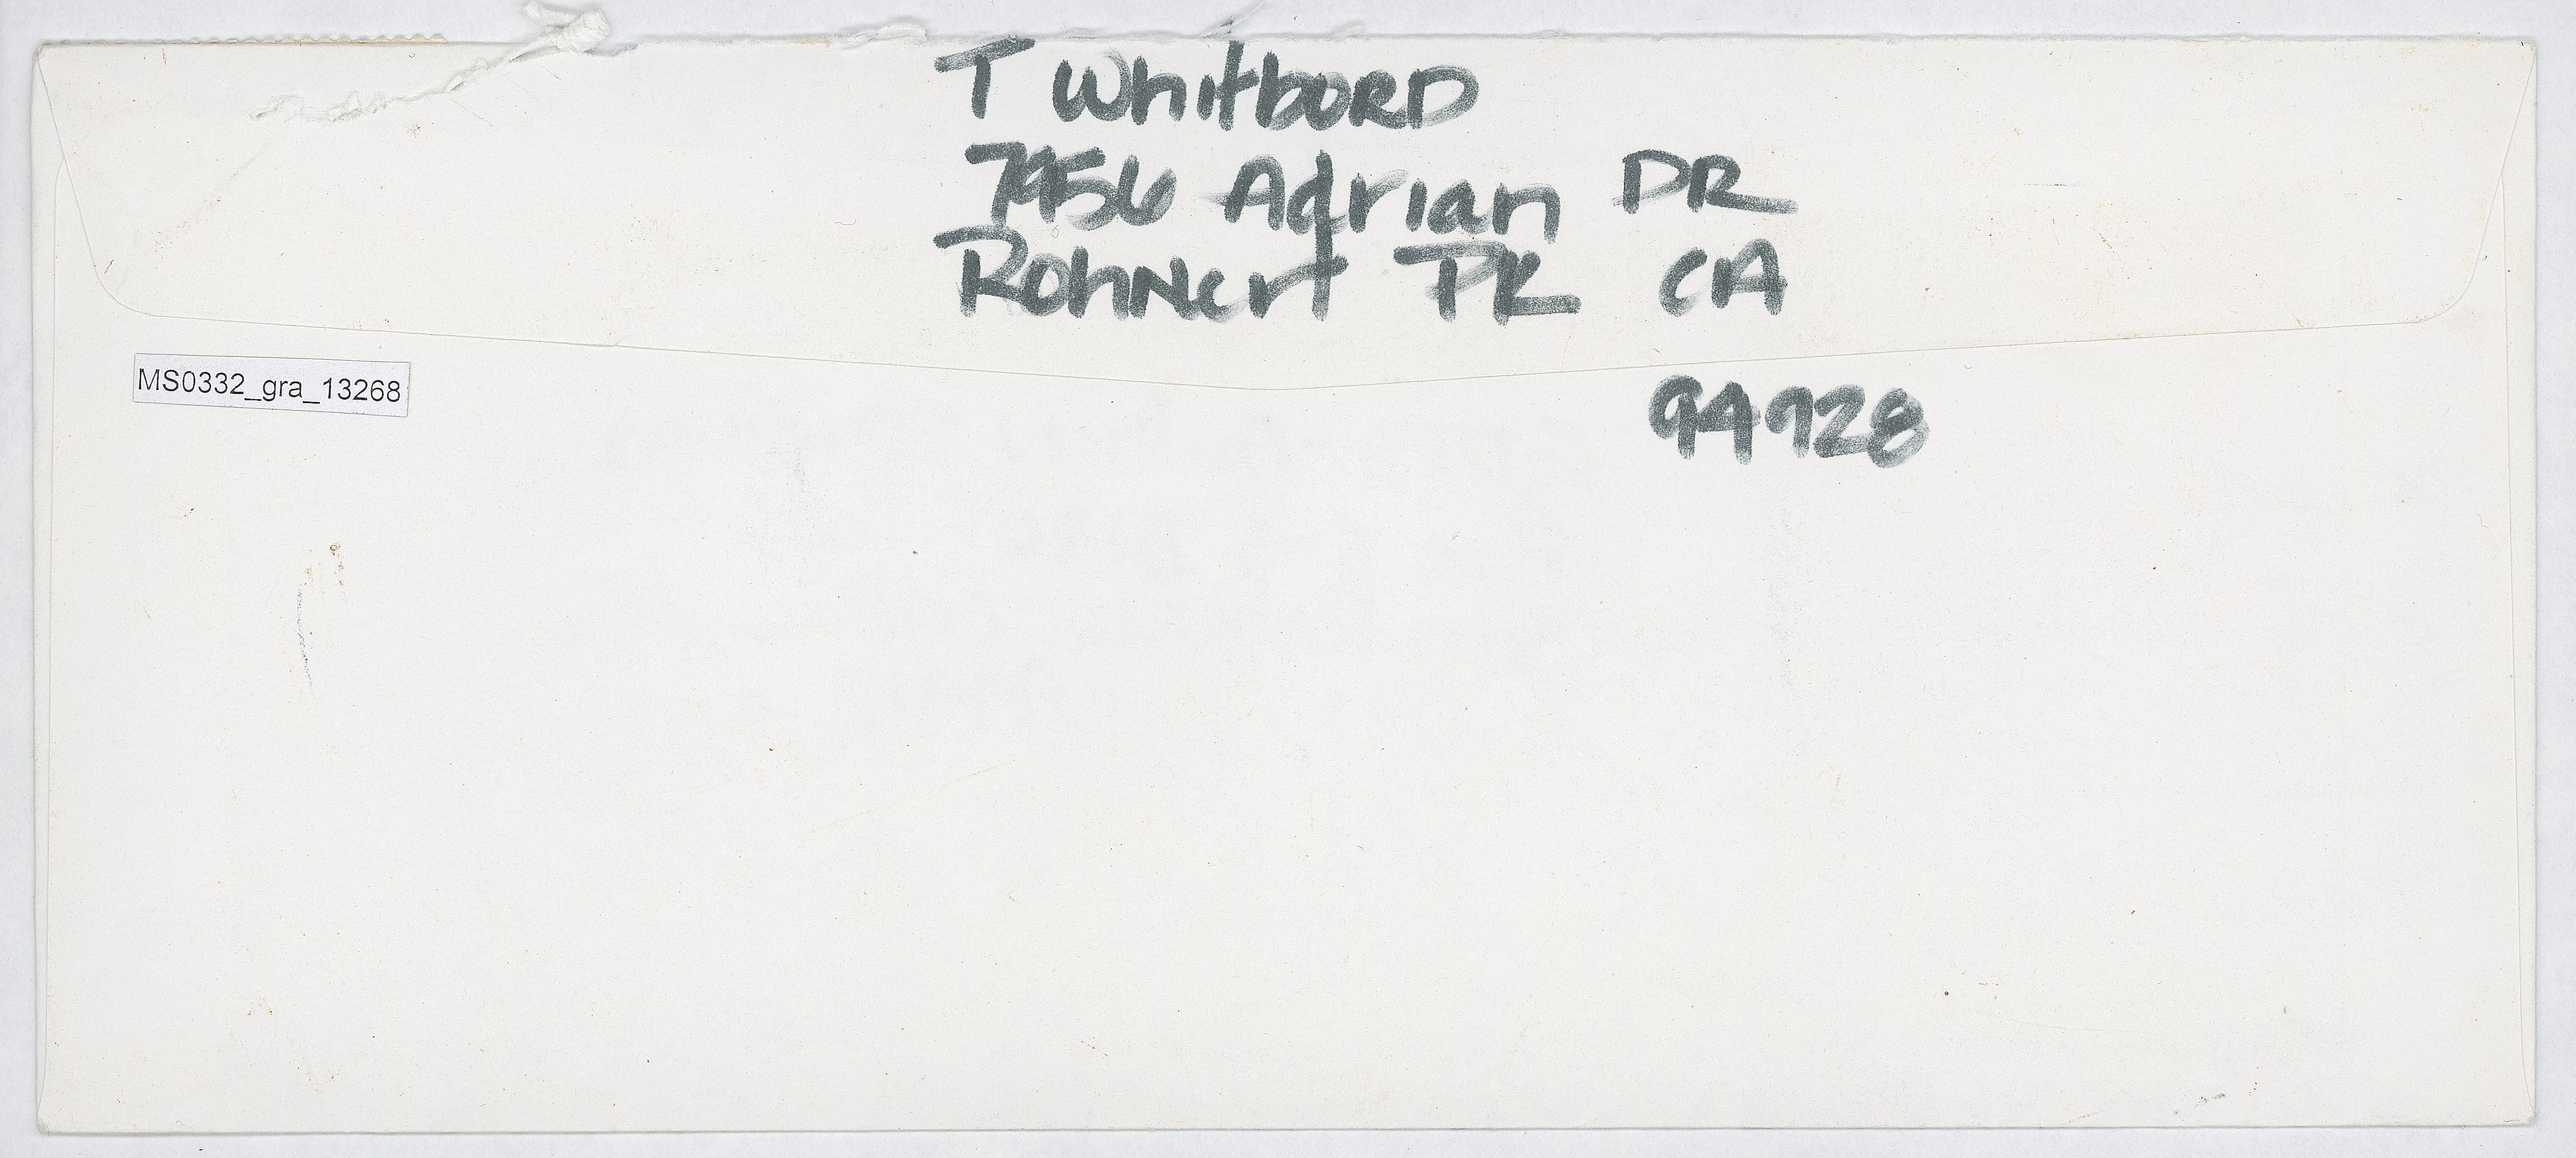 T WhitboRD
7956 Adrian DR
RohNert PK CA
MS0332_gra_13268
94928